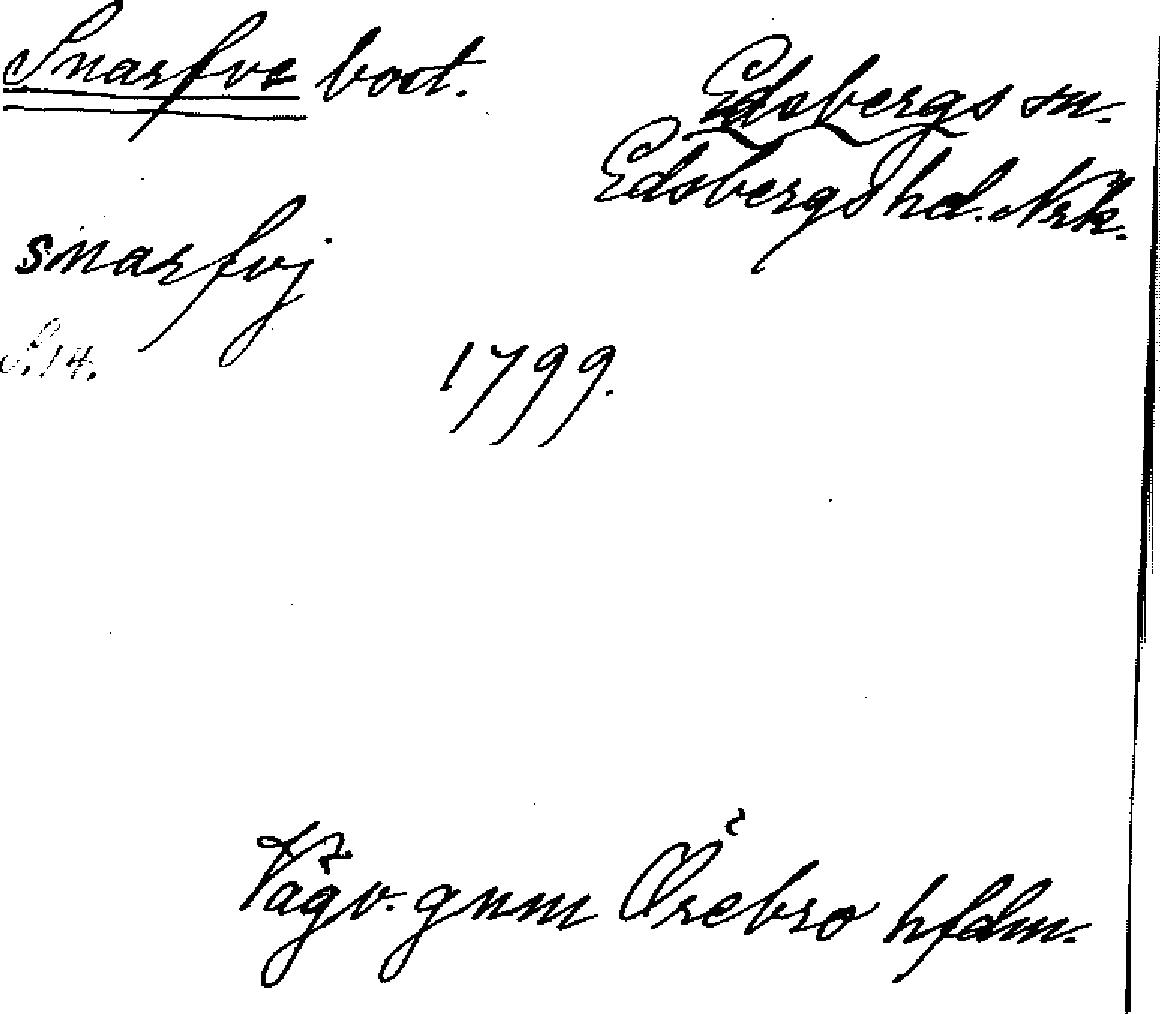 Snarfve boet.
Edsbergs sn.
Edsbergs hd. Nrk.
snarfvj
S. 14.
1799.
Vägv. gnm Örebro hfdm.